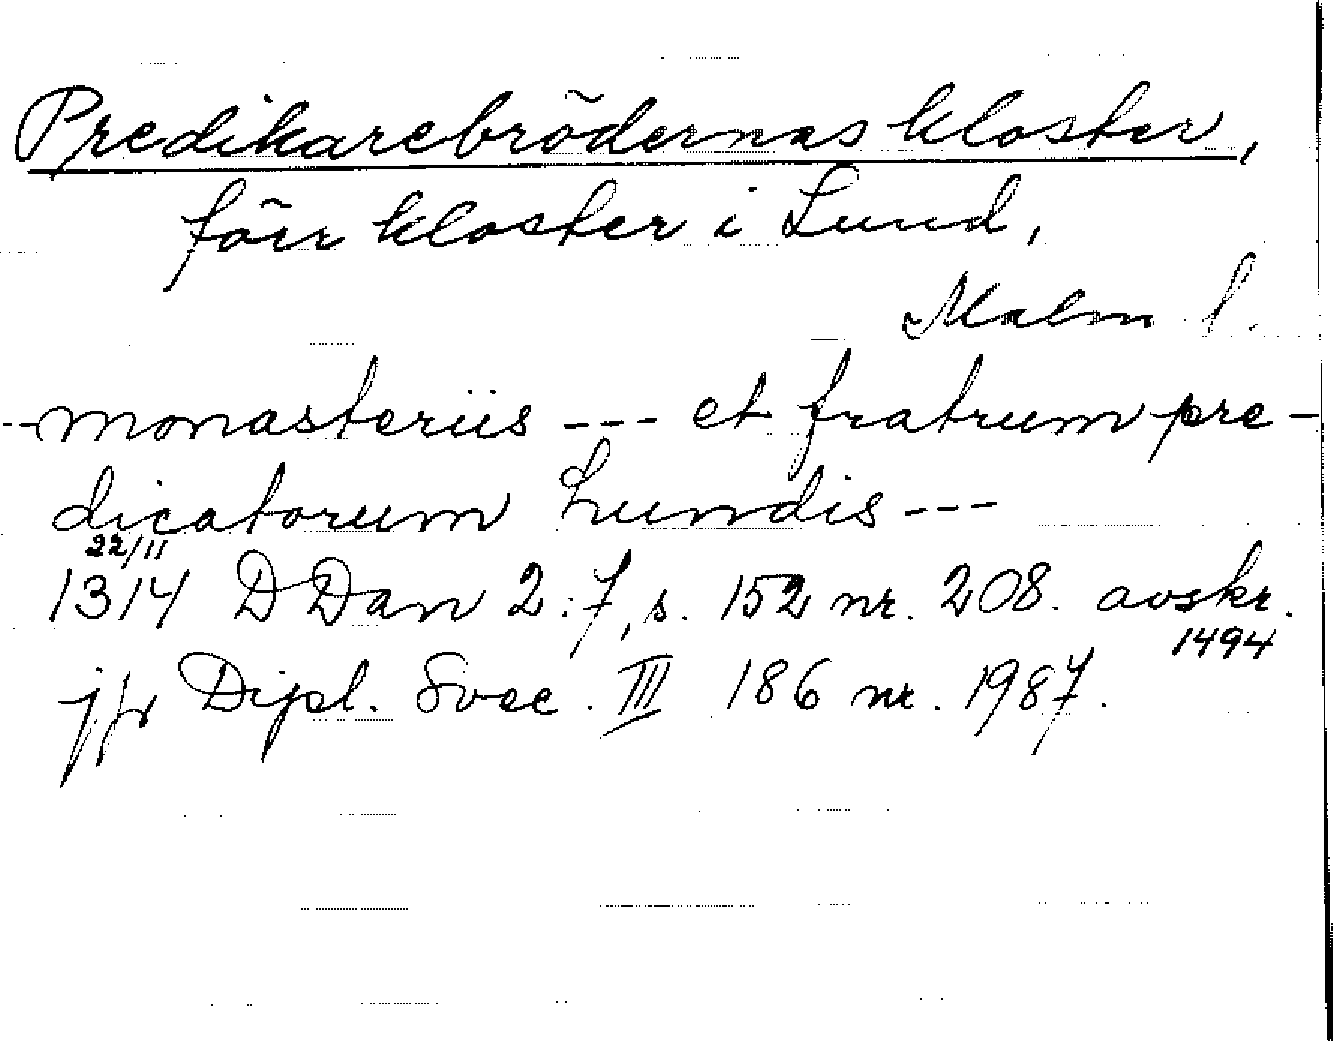 Predikarebrödernas kloster,
förr kloster i Lund,
Malm l.
-- monasteriis --- et fratrum pre-
dicatorum Lundis ---
22/11
1314 DDan 2:7, s. 152 nr. 208. avskr.
1494
jfr Dipl. Svec. III 186 nr. 1987.